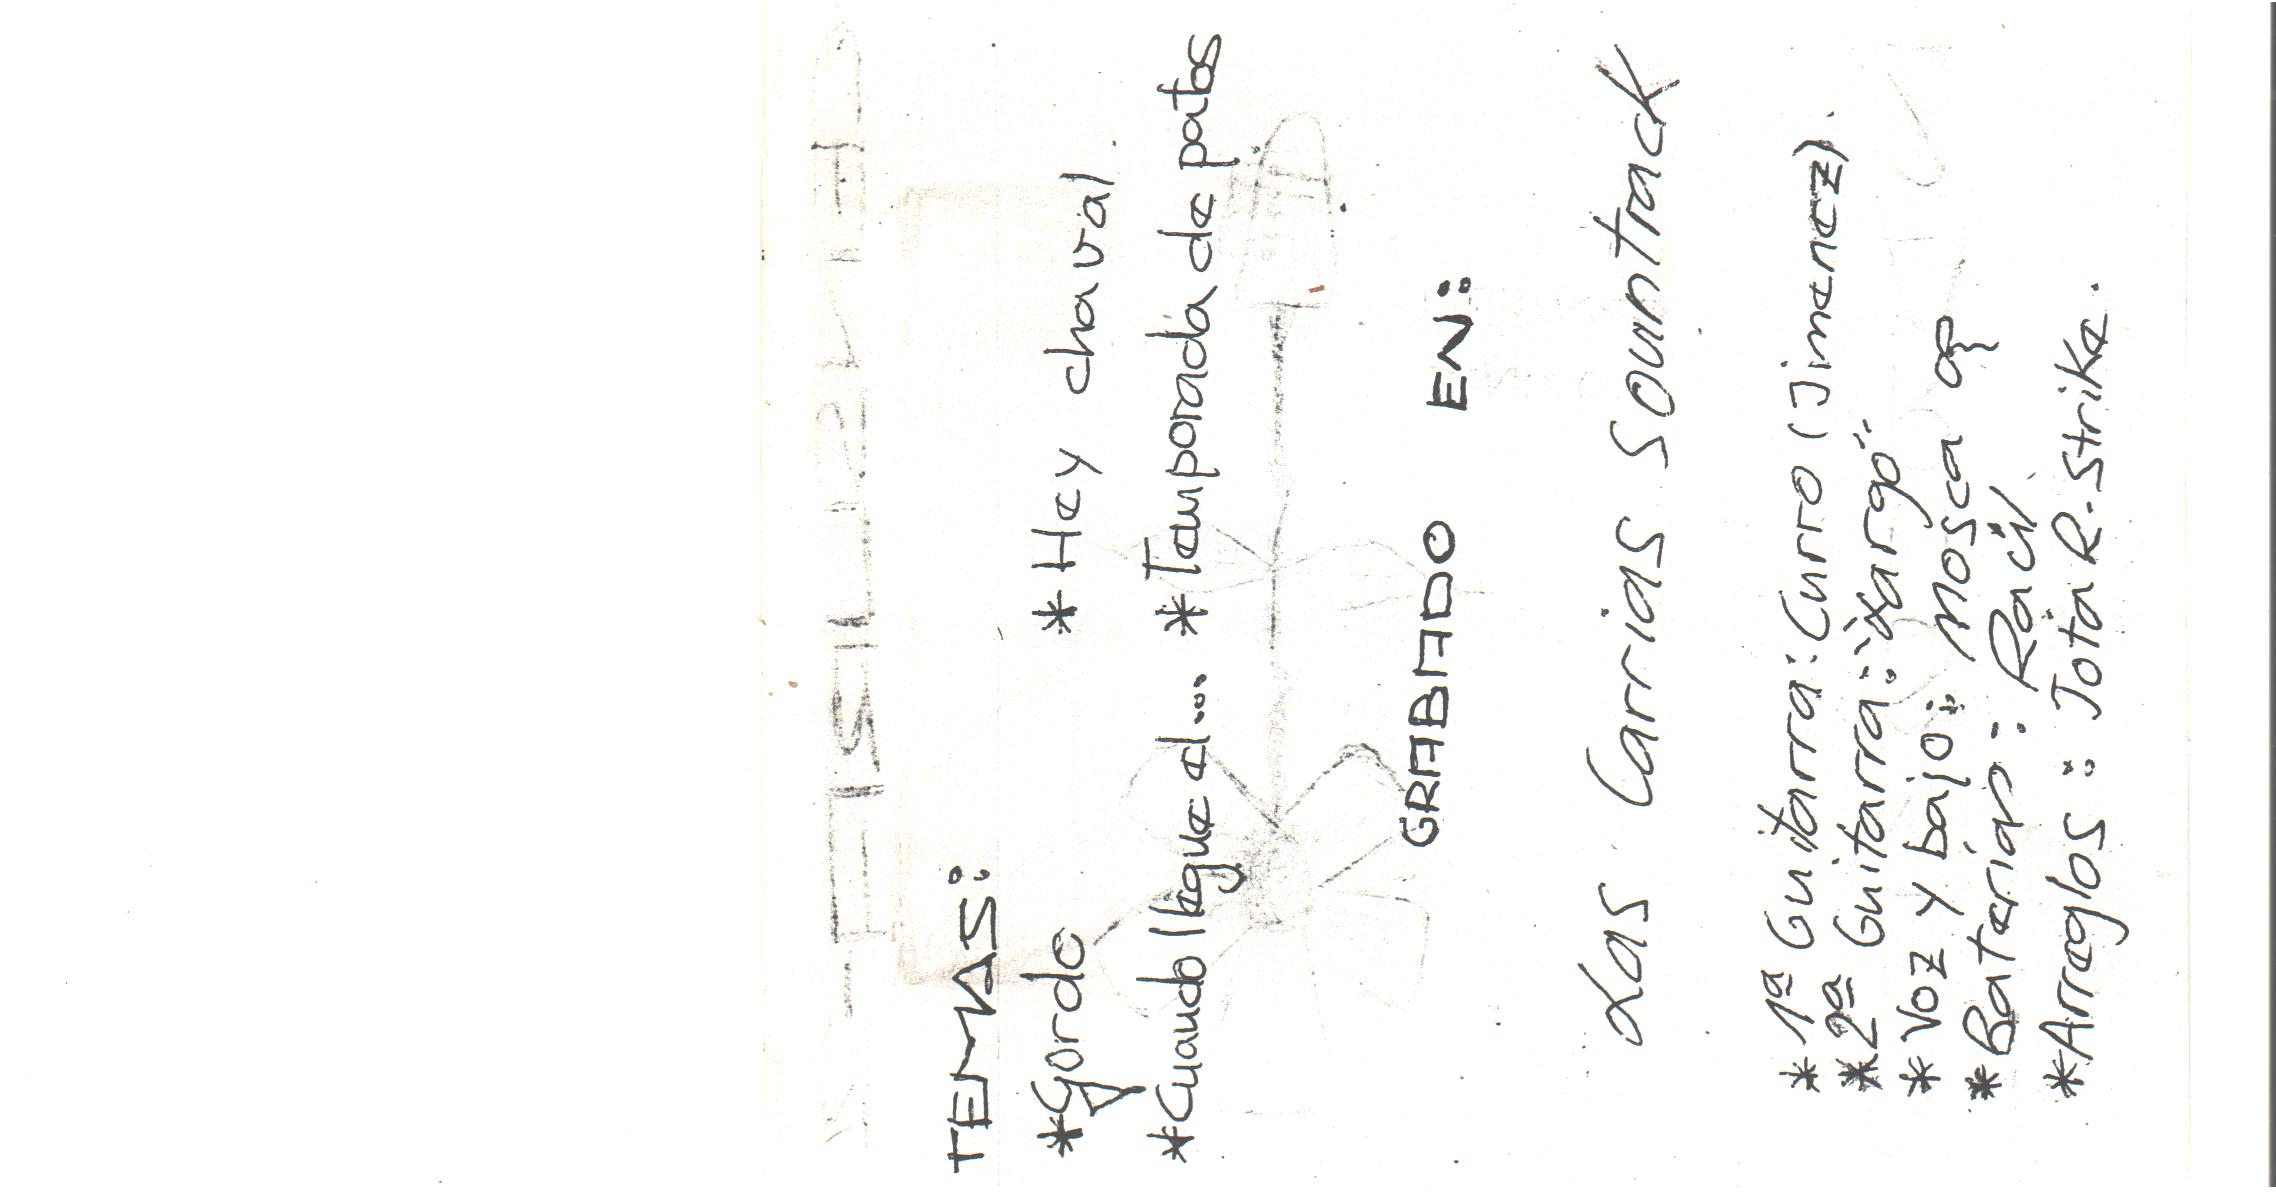 TEMAS:
*Gordo *Hey chaval
*Cuando llegue el... *Temporada de patos
GRABADO EN:
Las Carrias Sountrack
*1ª Guitarra: Curro (Jimenez).
*2ª Guitarra: "Largo"
*Voz y bajo: Mosca
*Baterias: Raúl
*Arreglos: Jota R-Strike.